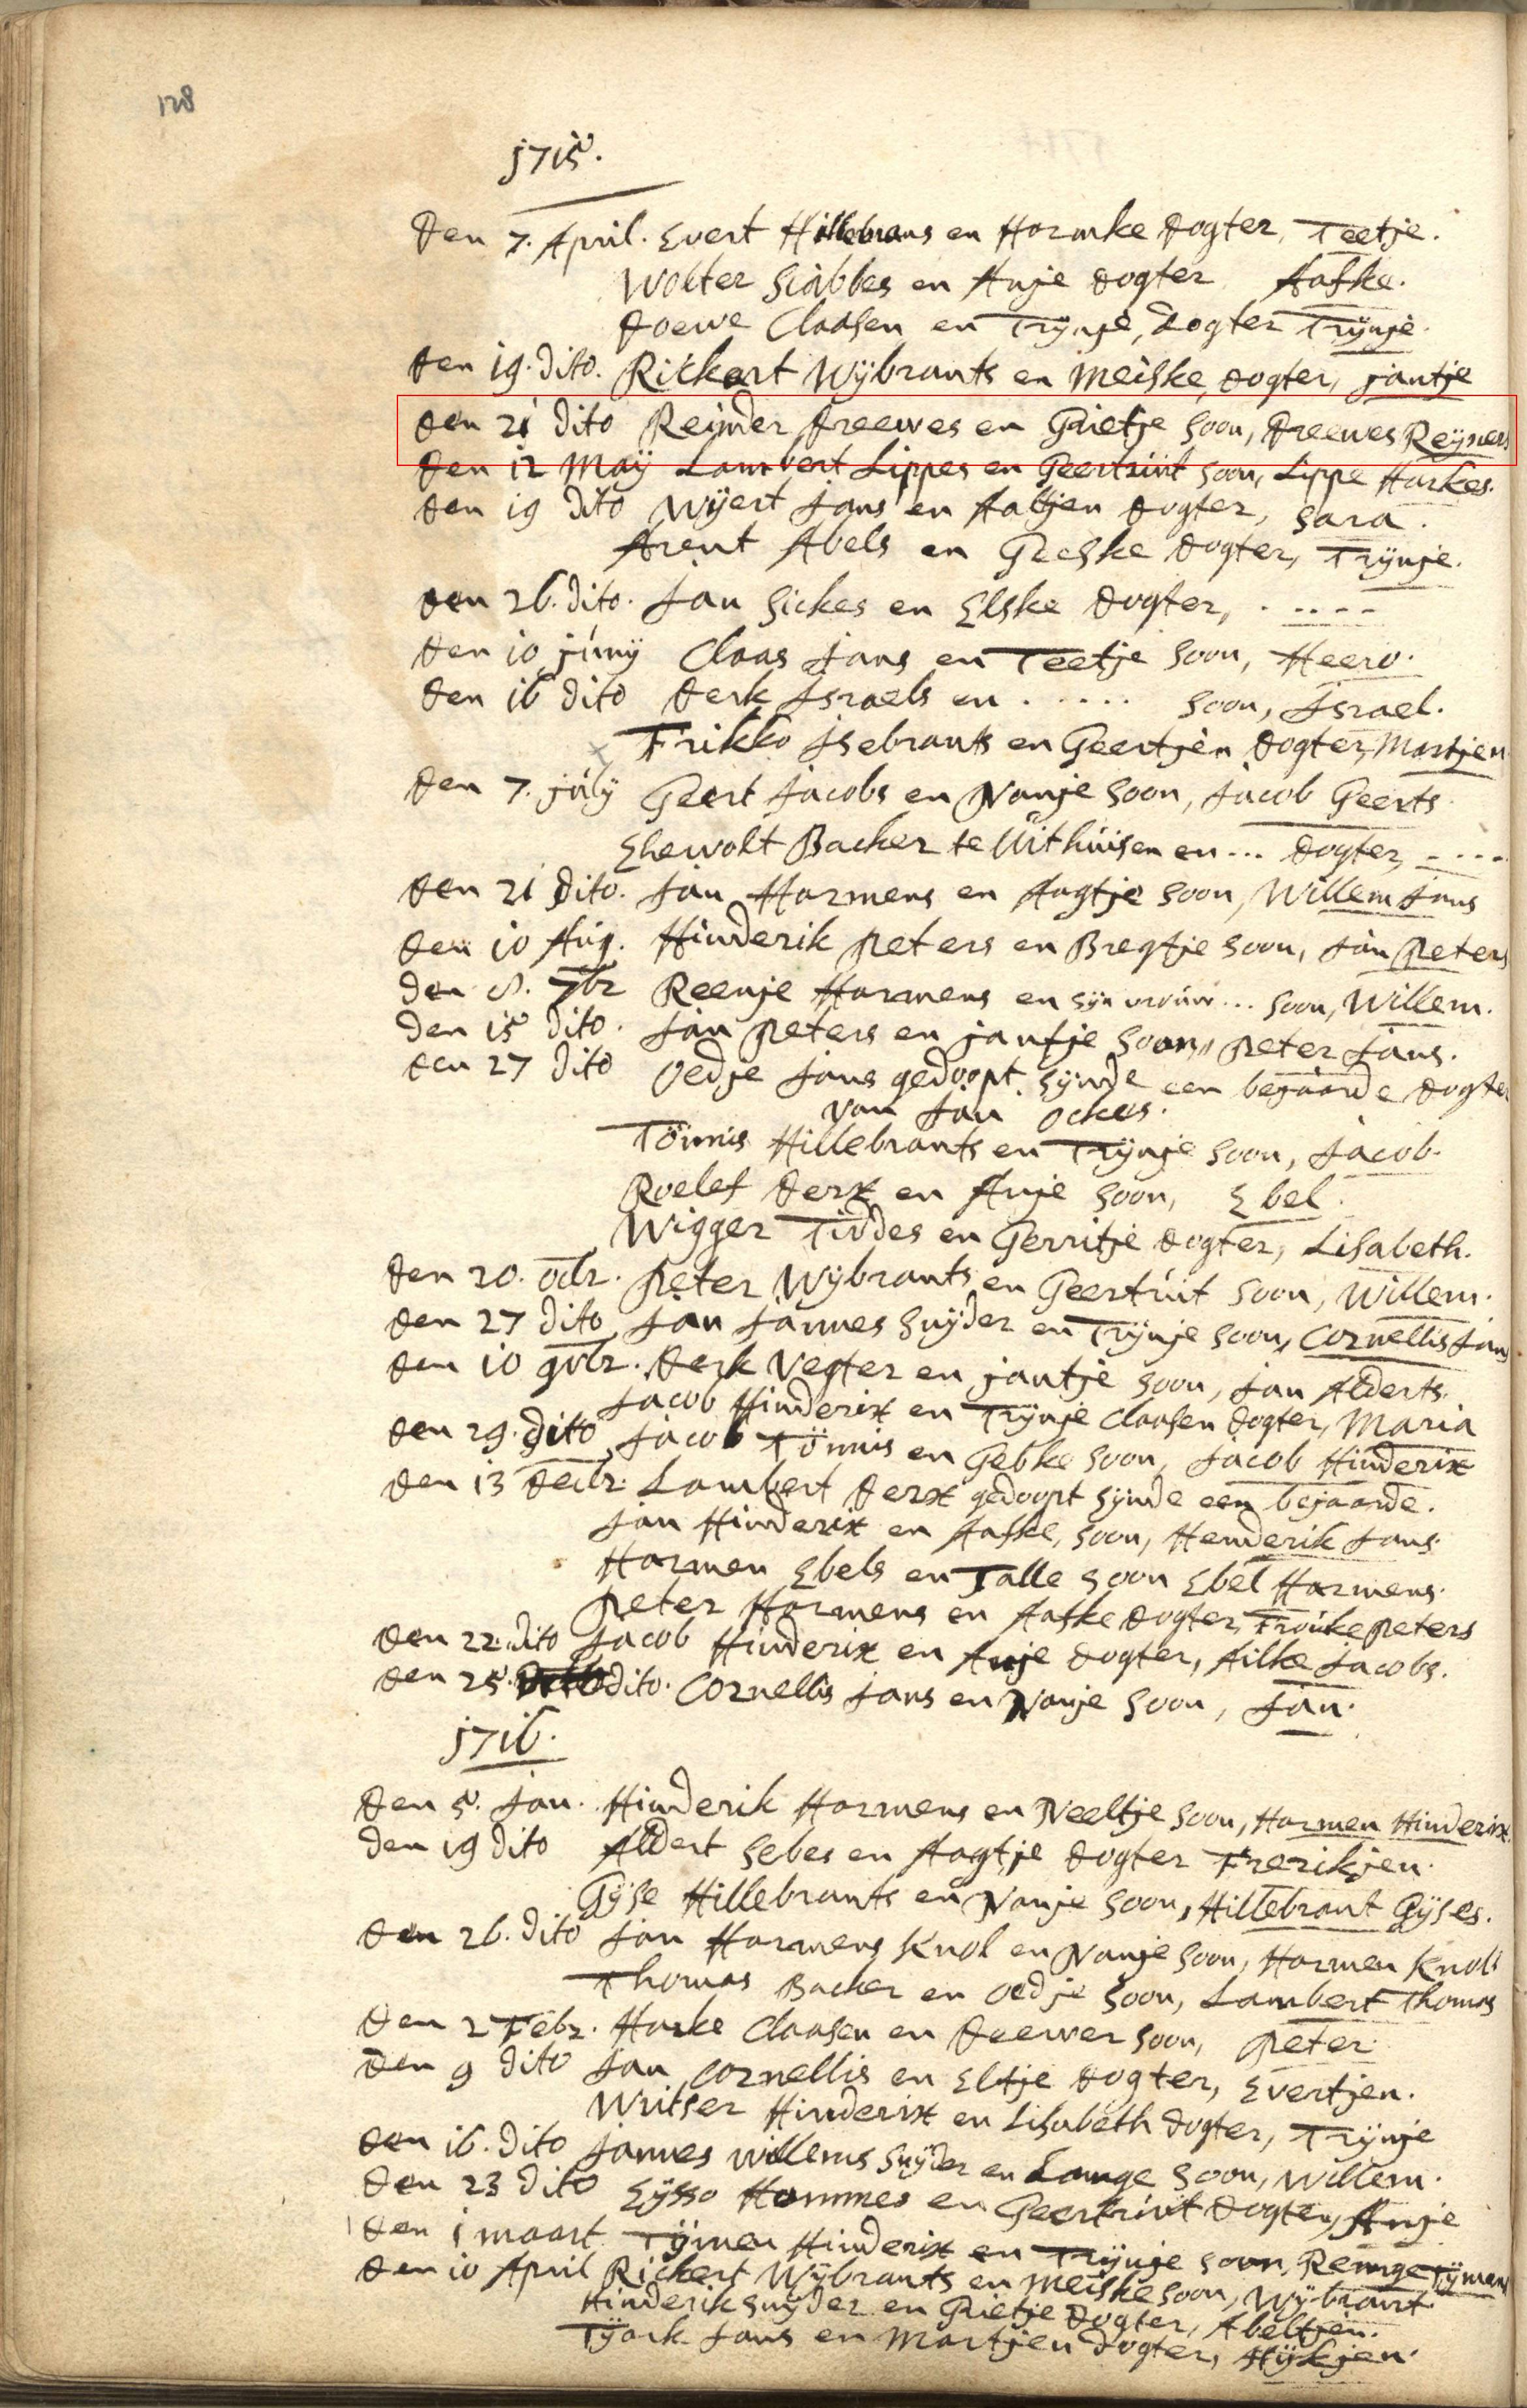 128
1715.
Den 7. April. Evert Hillebrans en Harmke dogter, Teetje.
Wolter Siabbes en Anje dogter Aafke.
Doewe Claasen en Trÿnje, dogter Trÿnje.
Den 19. dito. Rickert Wÿbrants en Meiske, dogter, jantje
Den 21 dito Reinder Dreewes en Grietje soon, Dreewes Reÿners
Den 12 Maÿ Lambert Lippes en Geertruit soon, Lippe Harkes.
Den 19 dito Wÿert Jans en Aaltjen dogter, Sara.
Arent Abels en Geeske dogter, Trÿnje.
Den 26. dito. Jan Sickes en Elske dogter, . ....
Den 10 junÿ Claas Jans en Teetje soon, Heero.
Den 16 dito Derk Israels en ..... soon, Israel.
Frikko Isebrants en Geertjen dogter, Martjen
Den 7. julÿ Geert Jacobs en Nanje soon, Jacob Geerts.
Ehewolt Backer te Uithuisen en ... dogter, ....
Den 21 dito. Jan Harmens en Aagtje soon, Willem Jans
Den 10 Aug. Hinderik Peters en Bregtje soon, Jan Peters
Den 8. 7br Reenje Harmens en sÿn vrouw ... soon, Willem.
Den 15 dito. Jan Peters en jantje soon, Peter Jans.
Den 27 dito Oedje Jans gedoopt sÿnde een bejaarde dogter
van Jan Ockes.
Tönnis Hillebrants en Trÿnje soon, Jacob.
Roelef Derx en Anje soon, Ebel.
Wigger Tiddes en Gerritje dogter, Lisabeth.
Den 20. Octr. Peter Wÿbrants en Geertruit soon, Willem.
Den 27 dito Jan Jannes Snÿder en Trÿnje soon, Cornellis Jans
Den 10 9vbr. Derk Vegter en jantje soon, Jan Alderts.
Jacob Hinderix en Trÿnje Claasen dogter, Maria
Den 29. dito Jacob Tönnis en Gebke soon, Jacob Hinderix
Den 13 Decbr. Lambert Derx gedoopt sÿnde een bejaarde.
Jan Hinderix en Aafke, soon, Henderik Jans.
Harmen Ebels en Talle soon Ebel Harmens.
Peter Harmens en Aafke dogter, Frouke Peters
Den 22. dito Jacob Hinderix en Anje dogter, Ailke Jacobs.
Den 25. dito. Cornellis Jans en Nanje soon, Jan.
1716.
Den 5. Jan. Hinderik Harmens en Neeltje soon, Harmen Hinderix.
Den 19 dito Aldert Sebes en Aagtje dogter Frerikjen.
Gÿse Hillebrants en Nanje soon, Hillebrant Gÿses.
Den 26. dito Jan Harmens Knol en Nanje soon, Harmen Knols
Thomas Backer en Oedje soon, Lambert Thomas
Den 2 Febr. Harke Claasen en Deewer soon, Peter.
Den 9 dito Jan Cornellis en Eltje dogter, Evertjen.
Writser Hinderix en Lisabeth dogter, Trÿnje
Den 16. dito Jannes Willems Snÿder en Lamge soon, Willem.
Den 23 dito Eÿsso Hommes en Geertruit dogter, Anje
Den 1 maart Tÿmen Hinderix en Trÿnje soon, Remge Tÿmens
Den 10 April Rickert Wÿbrants en Meiske soon, Wÿbrant
Hinderik Snÿder en Grietje dogter, Abeltjen.
Tÿark Jans en Martjen dogter, Hÿkjen.